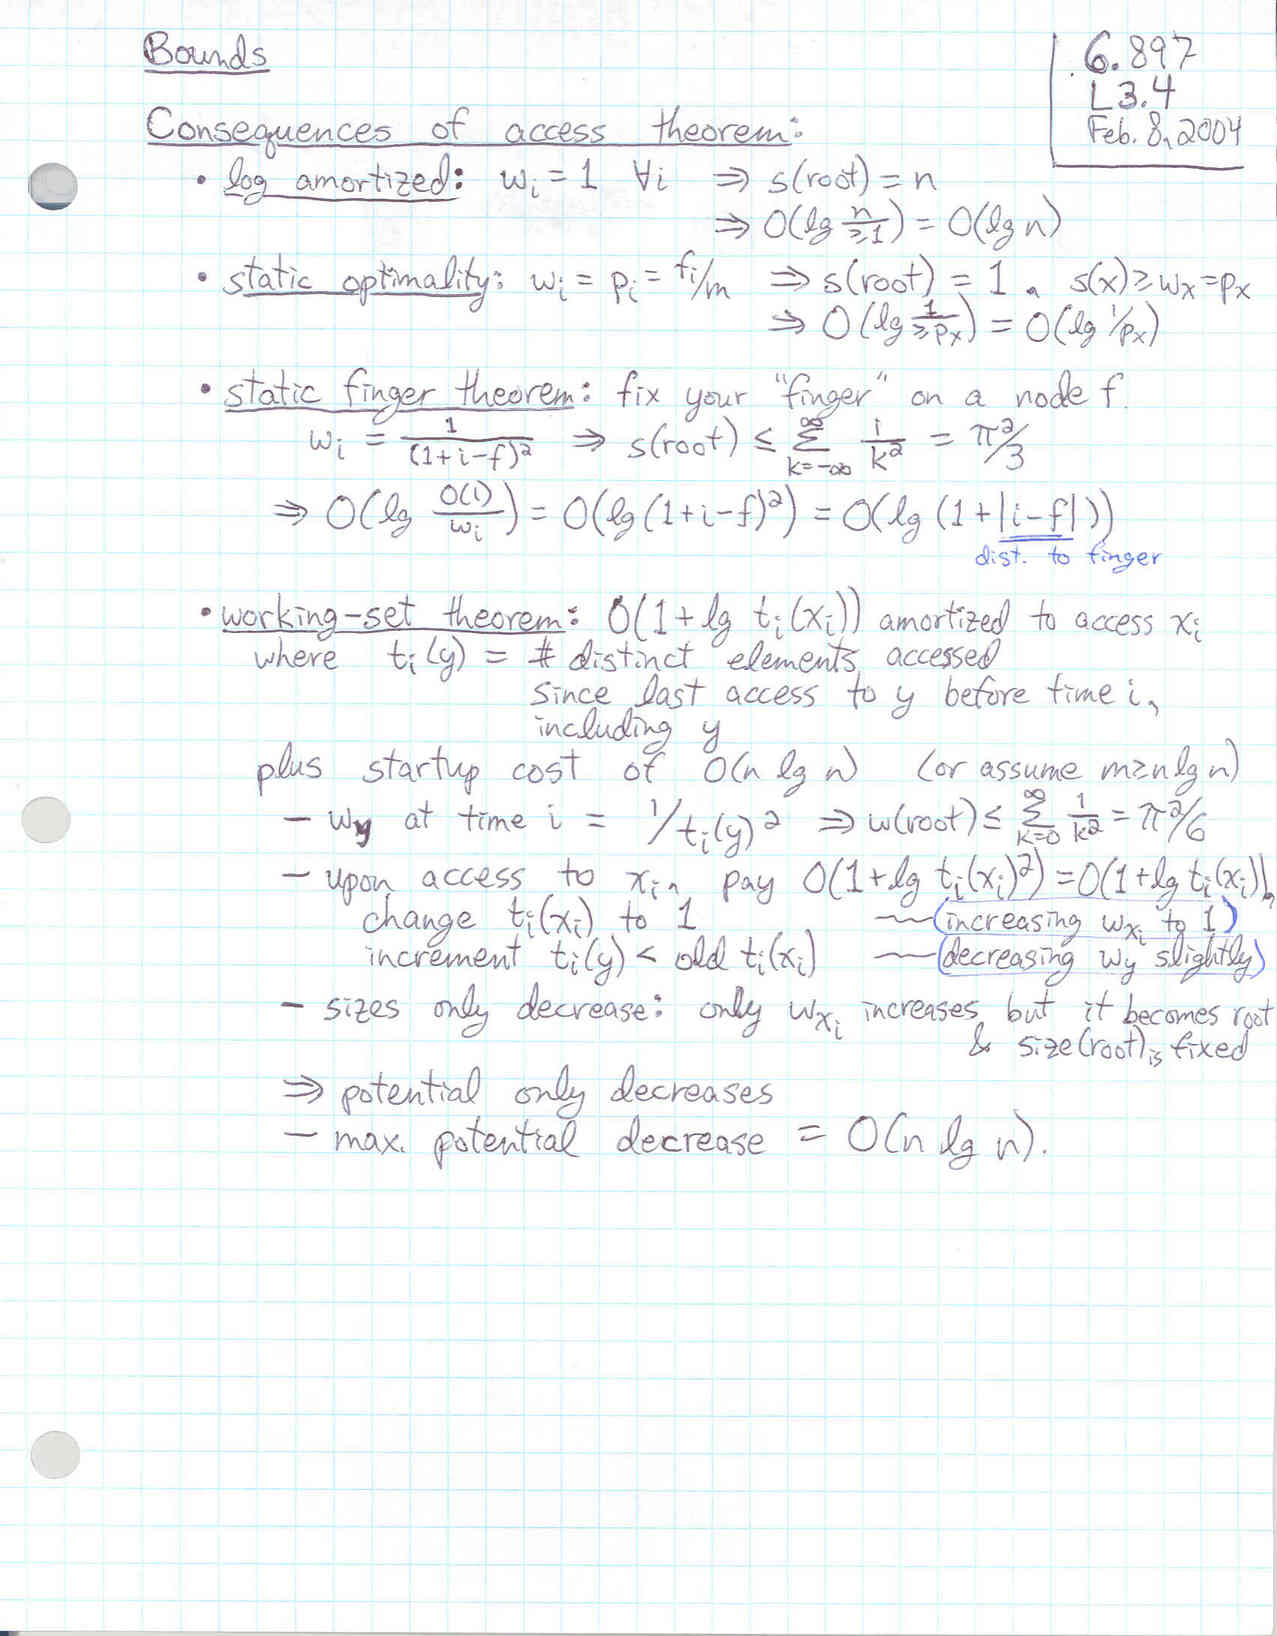 Bounds
6.897
L3.4
Feb. 8, 2004
Consequences of access theorem:
• log amortized: wᵢ = 1 ∀i ⇒ s(root) = n
⇒ O(lg n/≥1) = O(lg n)
• static optimality: wᵢ = pᵢ = fᵢ/m ⇒ s(root) = 1, s(x) ≥ wₓ = pₓ
⇒ O(lg 1/≥pₓ) = O(lg 1/pₓ)
• static finger theorem: fix your "finger" on a node f.
wᵢ = 1/(1+i-f)² ⇒ s(root) ≤ ∑_{k=-∞}^{∞} 1/k² = π²/3
⇒ O(lg O(1)/wᵢ) = O(lg (1+i-f)²) = O(lg (1+|i-f|))
dist. to finger
• working-set theorem: O(1 + lg tᵢ(xᵢ)) amortized to access xᵢ
where tᵢ(y) = # distinct elements accessed
since last access to y before time i,
including y
plus startup cost of O(n lg n) (or assume m≥n lg n)
- w_y at time i = 1/tᵢ(y)² ⇒ w(root) ≤ ∑_{k=0}^{∞} 1/k² = π²/6
- upon access to xᵢ, pay O(1+lg tᵢ(xᵢ)²) = O(1+lg tᵢ(xᵢ)),
change tᵢ(xᵢ) to 1 ~~(increasing w_{xᵢ} to 1)
increment tᵢ(y) < old tᵢ(xᵢ) ~~(decreasing w_y slightly)
- sizes only decrease: only w_{xᵢ} increases, but it becomes root
& size(root) is fixed
⇒ potential only decreases
- max. potential decrease = O(n lg n).